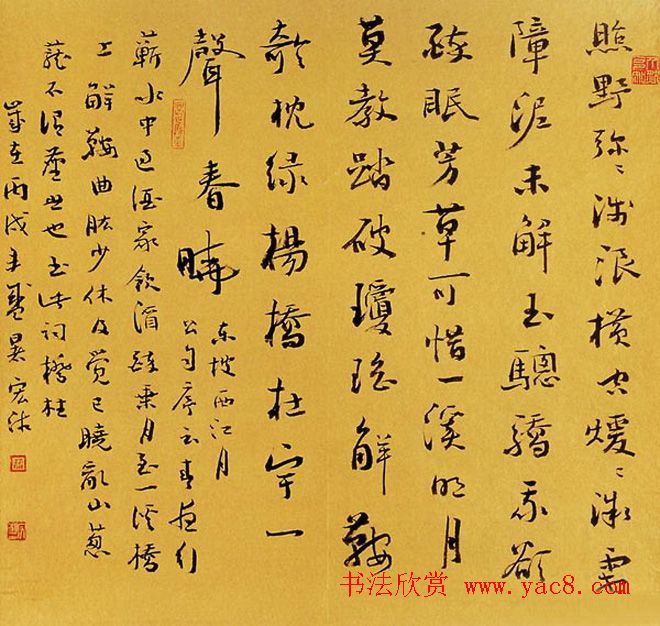 照野弥〻浅浪横空暧〻微霄
障泥未解玉驄驕我欲
醉眠芳草可惜一溪明月
莫教踏破瓊瑶解鞍
欹枕绿楊橋杜宇一
聲春曉
东坡西江月
公自序云春夜行
蘄水中过酒家飲酒醉乘月至一溪橋
上解鞍曲肱少休及觉已曉亂山葱
蘢不谓塵世也书此词橋柱
歲在丙戌年盛暑宏
书法欣赏 www.yac8.com